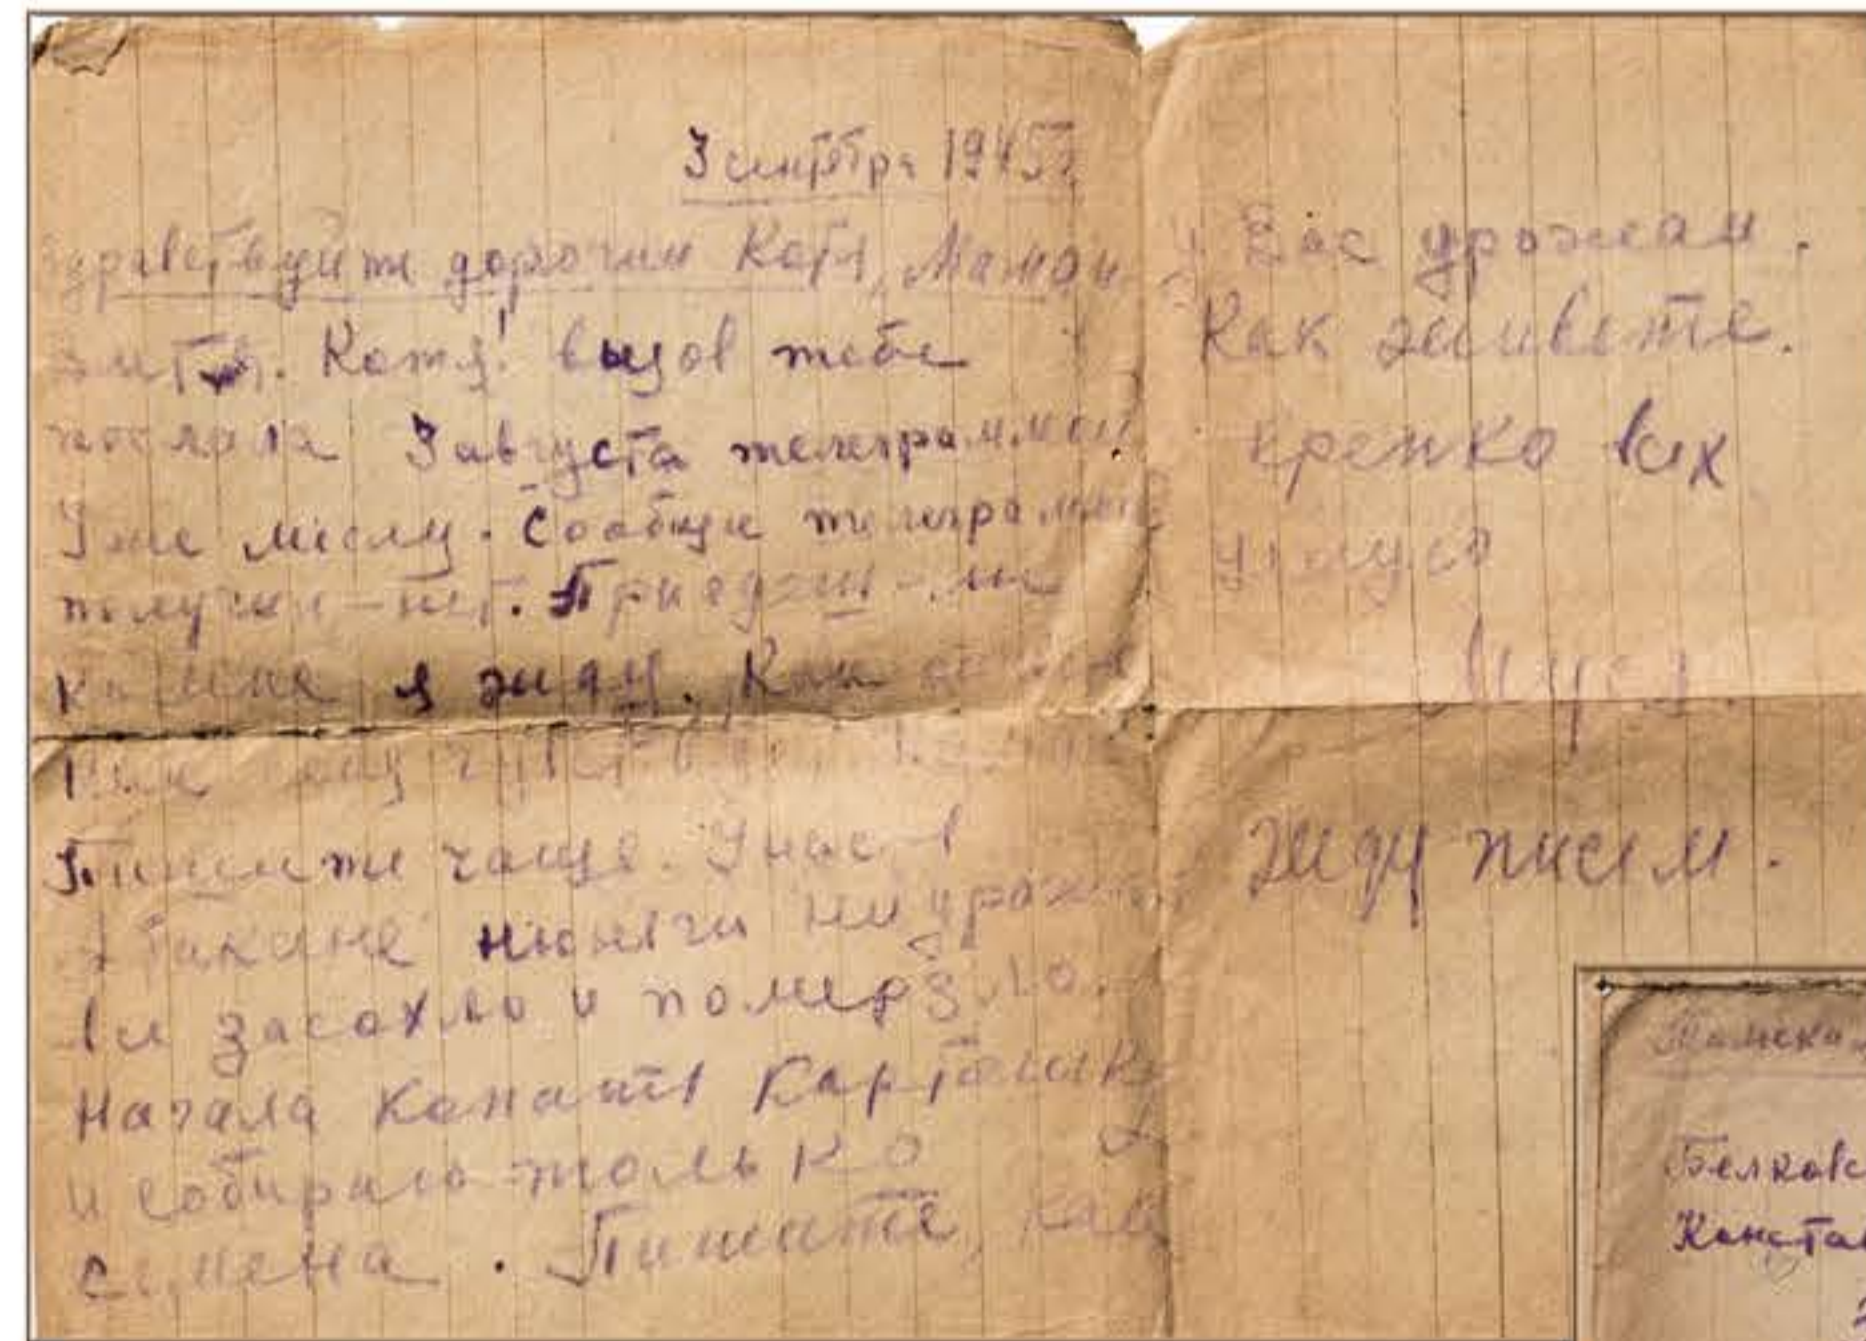 3 сентября 1945г
Здравствуйте дорогии Котя, Мама и
Котя! вызов тебе
послала 3 августа телеграммой
Уже месяц. Сообщи телеграмму
получил-нет. Приедешь-ли
ко мне я жду. Как
Пишите чаще. У нас в
Абакане нюнячи неурожай
все засохло и померзло.
Начала копать картошк
и собираю только
семена. Пишите, как
у Вас урожаи.
Как живете.
крепко всех
целую
Муся.
Жду писем.
Томска
Белковс
Констан